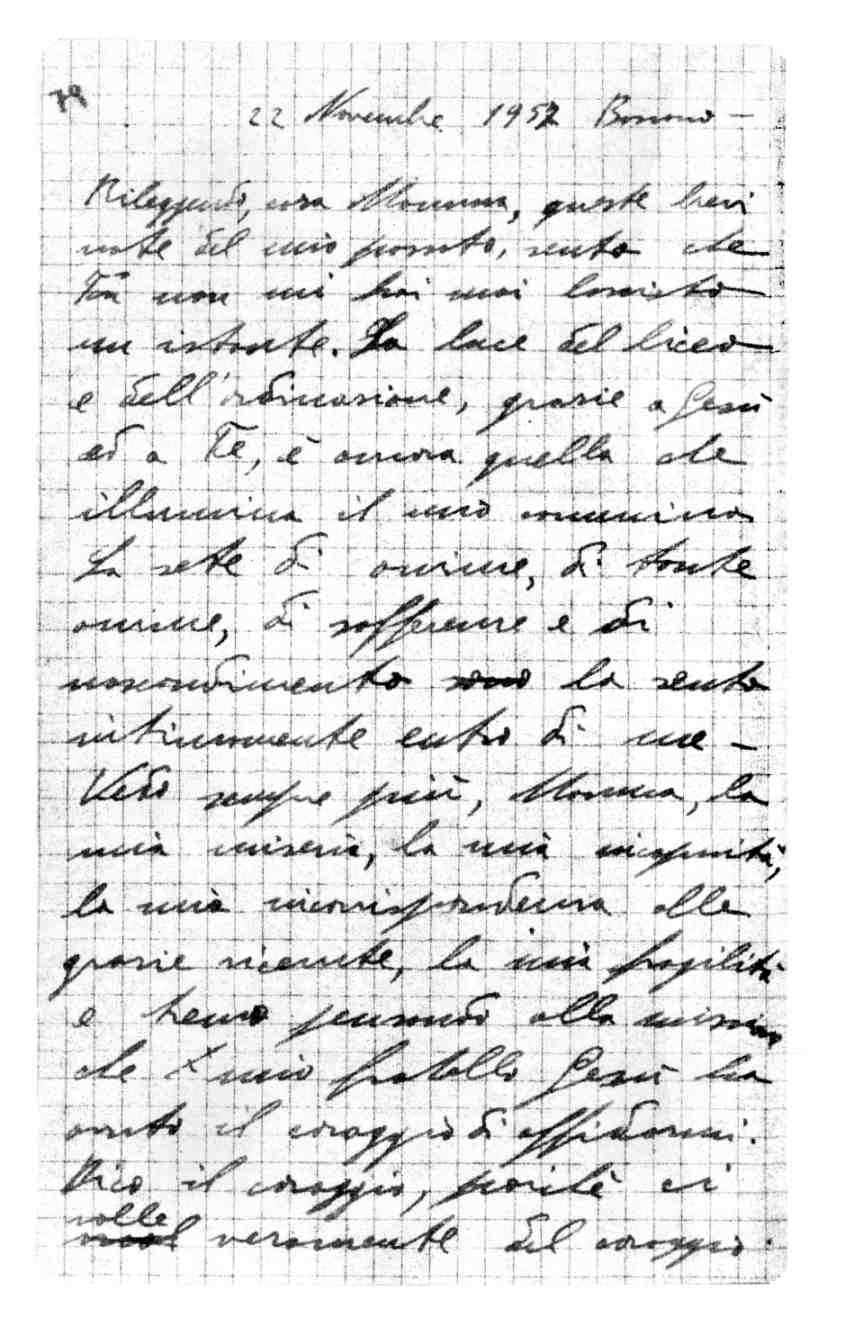 79
22 Novembre 1957 Bonono —
Rileggendo, cara Mamma, queste brevi
note del mio passato, sento che
Tu non mi hai mai lasciato
un istante. La luce del liceo
e dell'ordinazione, grazie a Gesù
ed a Te, è ancora quella che
illumina il mio cammino
La sete di anime, di tante
anime, di sofferenze e di
nascondimento sono la sento
intimamente entro di me —
Vedo sempre più, Mamma, la
mia miseria, la mia incapacità,
la mia incorrispondenza alle
grazie ricevute, la mia fragilità
e tremo pensando alla missione
che mio fratello Gesù ha
avuto il coraggio di affidarmi.
Dico il coraggio, poiché ci
volle
veramente del coraggio.